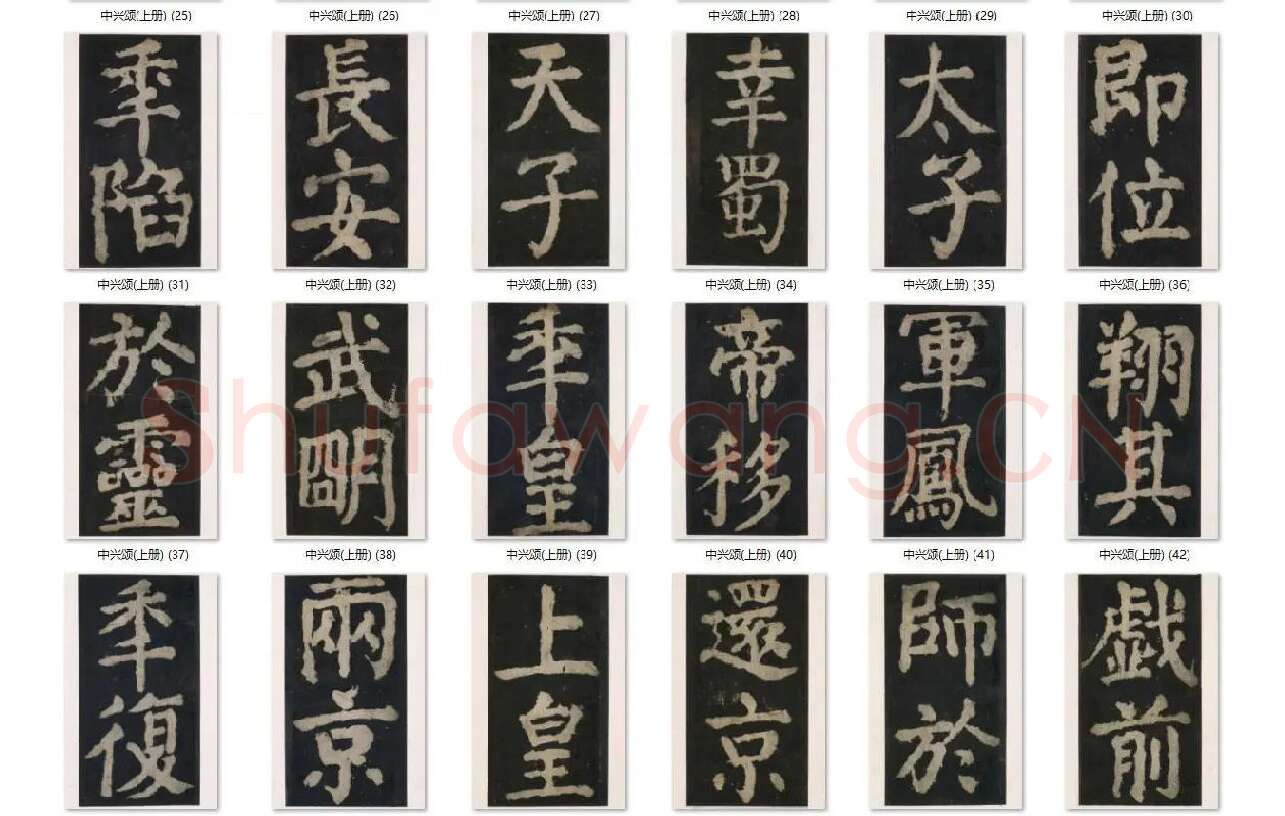 中兴颂(上册) (25)
中兴颂(上册) (26)
中兴颂(上册) (27)
中兴颂(上册) (28)
中兴颂(上册) (29)
中兴颂(上册) (30)
秊陷
長安
天子
幸蜀
太子
即位
中兴颂(上册) (31)
中兴颂(上册) (32)
中兴颂(上册) (33)
中兴颂(上册) (34)
中兴颂(上册) (35)
中兴颂(上册) (36)
於靈
武明
秊皇
帝移
軍鳳
翔其
Shufawang.CN
中兴颂(上册) (37)
中兴颂(上册) (38)
中兴颂(上册) (39)
中兴颂(上册) (40)
中兴颂(上册) (41)
中兴颂(上册) (42)
秊復
兩京
上皇
還京
師於
戯前